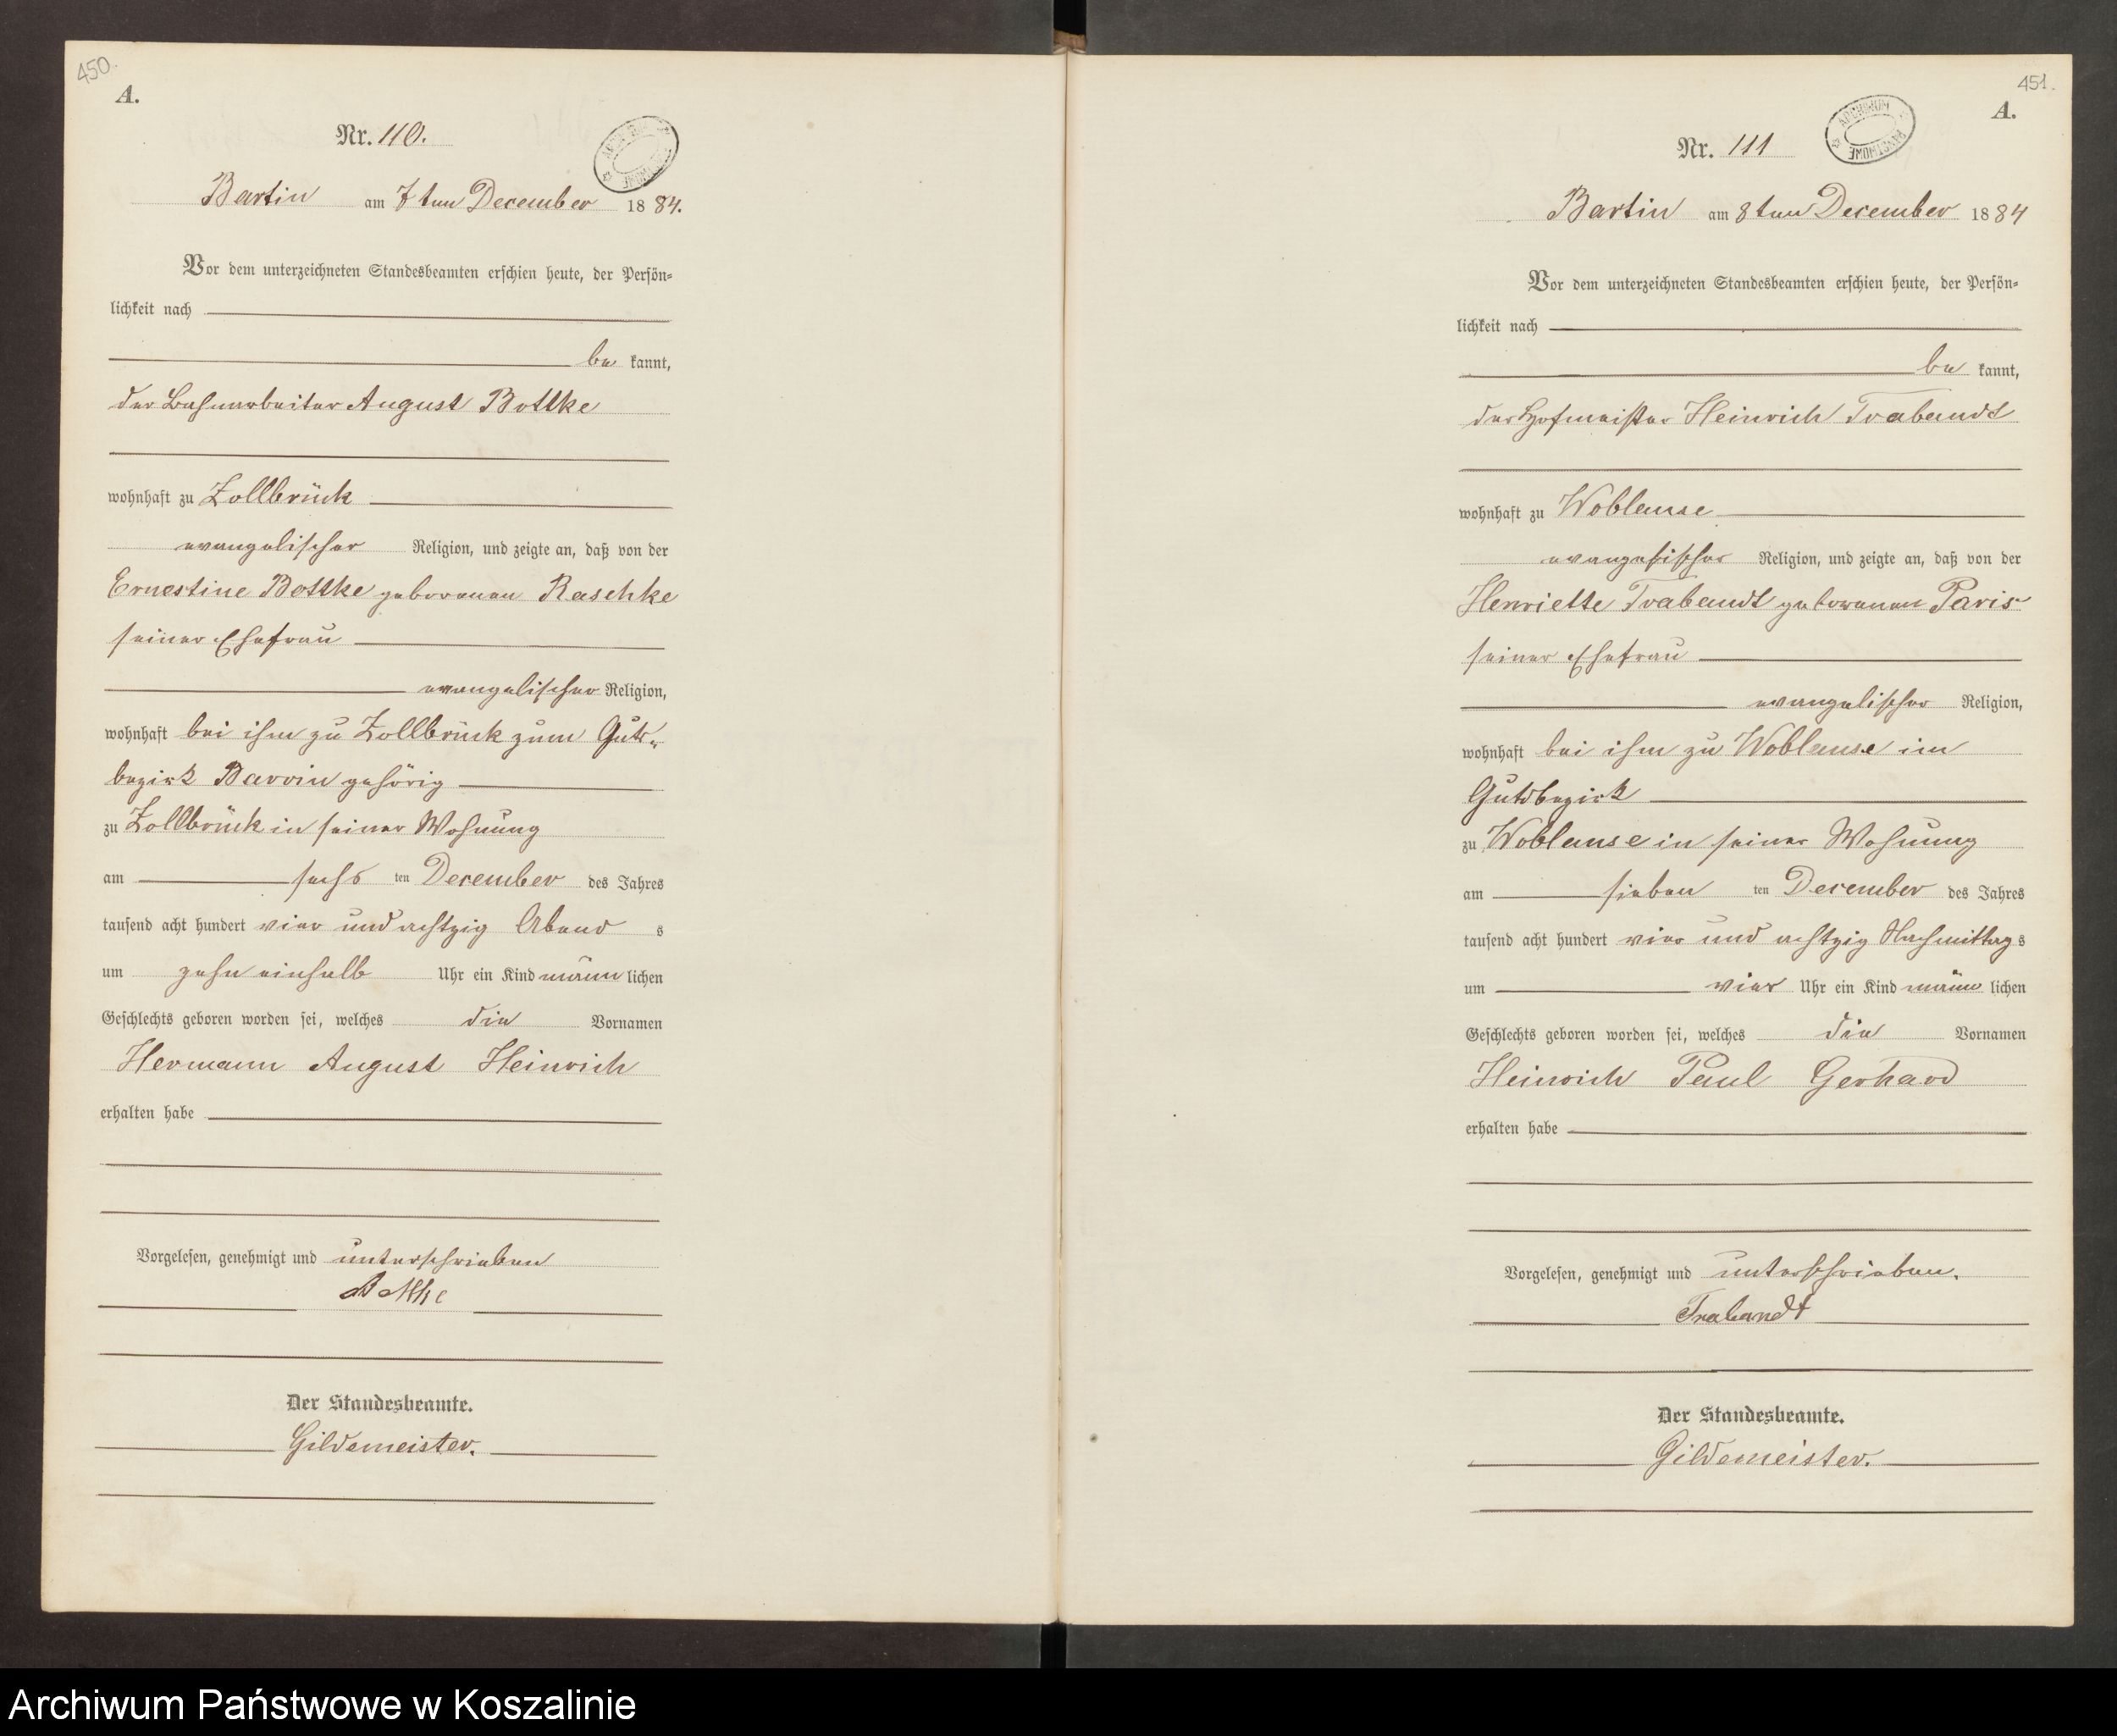 450.
A.
Nr. 110.
Bartin am 7ten December 1884.
Vor dem unterzeichneten Standesbeamten erschien heute, der Persön-
lichkeit nach
be kannt,
der Bahnarbeiter August Bottke
wohnhaft zu Zollbrück
evangelischer Religion, und zeigte an, daß von der
Ernestine Bottke geborenen Raschke
seiner Ehefrau
evangelischer Religion,
wohnhaft bei ihm zu Zollbrück zum Guts-
bezirk Barvin gehörig
zu Zollbrück in seiner Wohnung
am sechs ten December des Jahres
tausend acht hundert vier und achtzig Abend s
um zehn einhalb Uhr ein Kind männ lichen
Geschlechts geboren worden sei, welches die Vornamen
Hermann August Heinrich
erhalten habe
Vorgelesen, genehmigt und unterschrieben
Bottke
Der Standesbeamte.
Gildemeister.
451.
A.
ARCHIWUM PAŃSTWOWE
Nr. 111
Bartin am 8ten December 1884
Vor dem unterzeichneten Standesbeamten erschien heute, der Persön-
lichkeit nach
be kannt,
der Hofmeister Heinrich Trabandt
wohnhaft zu Woblanse
evangelischer Religion, und zeigte an, daß von der
Henriette Trabandt geborenen Paris
seiner Ehefrau
evangelischer Religion,
wohnhaft bei ihm zu Woblanse im
Gutsbezirk
zu Woblanse in seiner Wohnung
am sieben ten December des Jahres
tausend acht hundert vier und achtzig Nachmittag s
um vier Uhr ein Kind männ lichen
Geschlechts geboren worden sei, welches die Vornamen
Heinrich Paul Gerhard
erhalten habe
Vorgelesen, genehmigt und unterschrieben.
Trabandt
Der Standesbeamte.
Gildemeister.
Archiwum Państwowe w Koszalinie